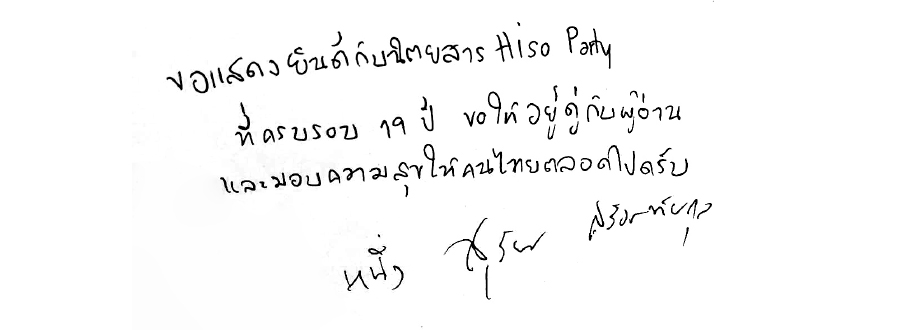 ขอแสดงยินดีกับนิตยสาร Hiso Party
ที่ครบรอบ 19 ปี ขอให้อยู่คู่กับผู้อ่าน
และมอบความสุขให้คนไทยตลอดไปครับ
หนึ่ง